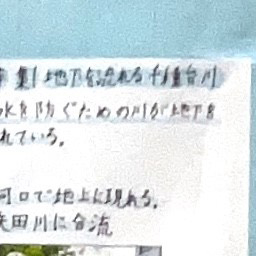 集!地下を流れる千種台川
水を防ぐための川が地下を
れている。
河口で地上に現れる。
矢田川に合流